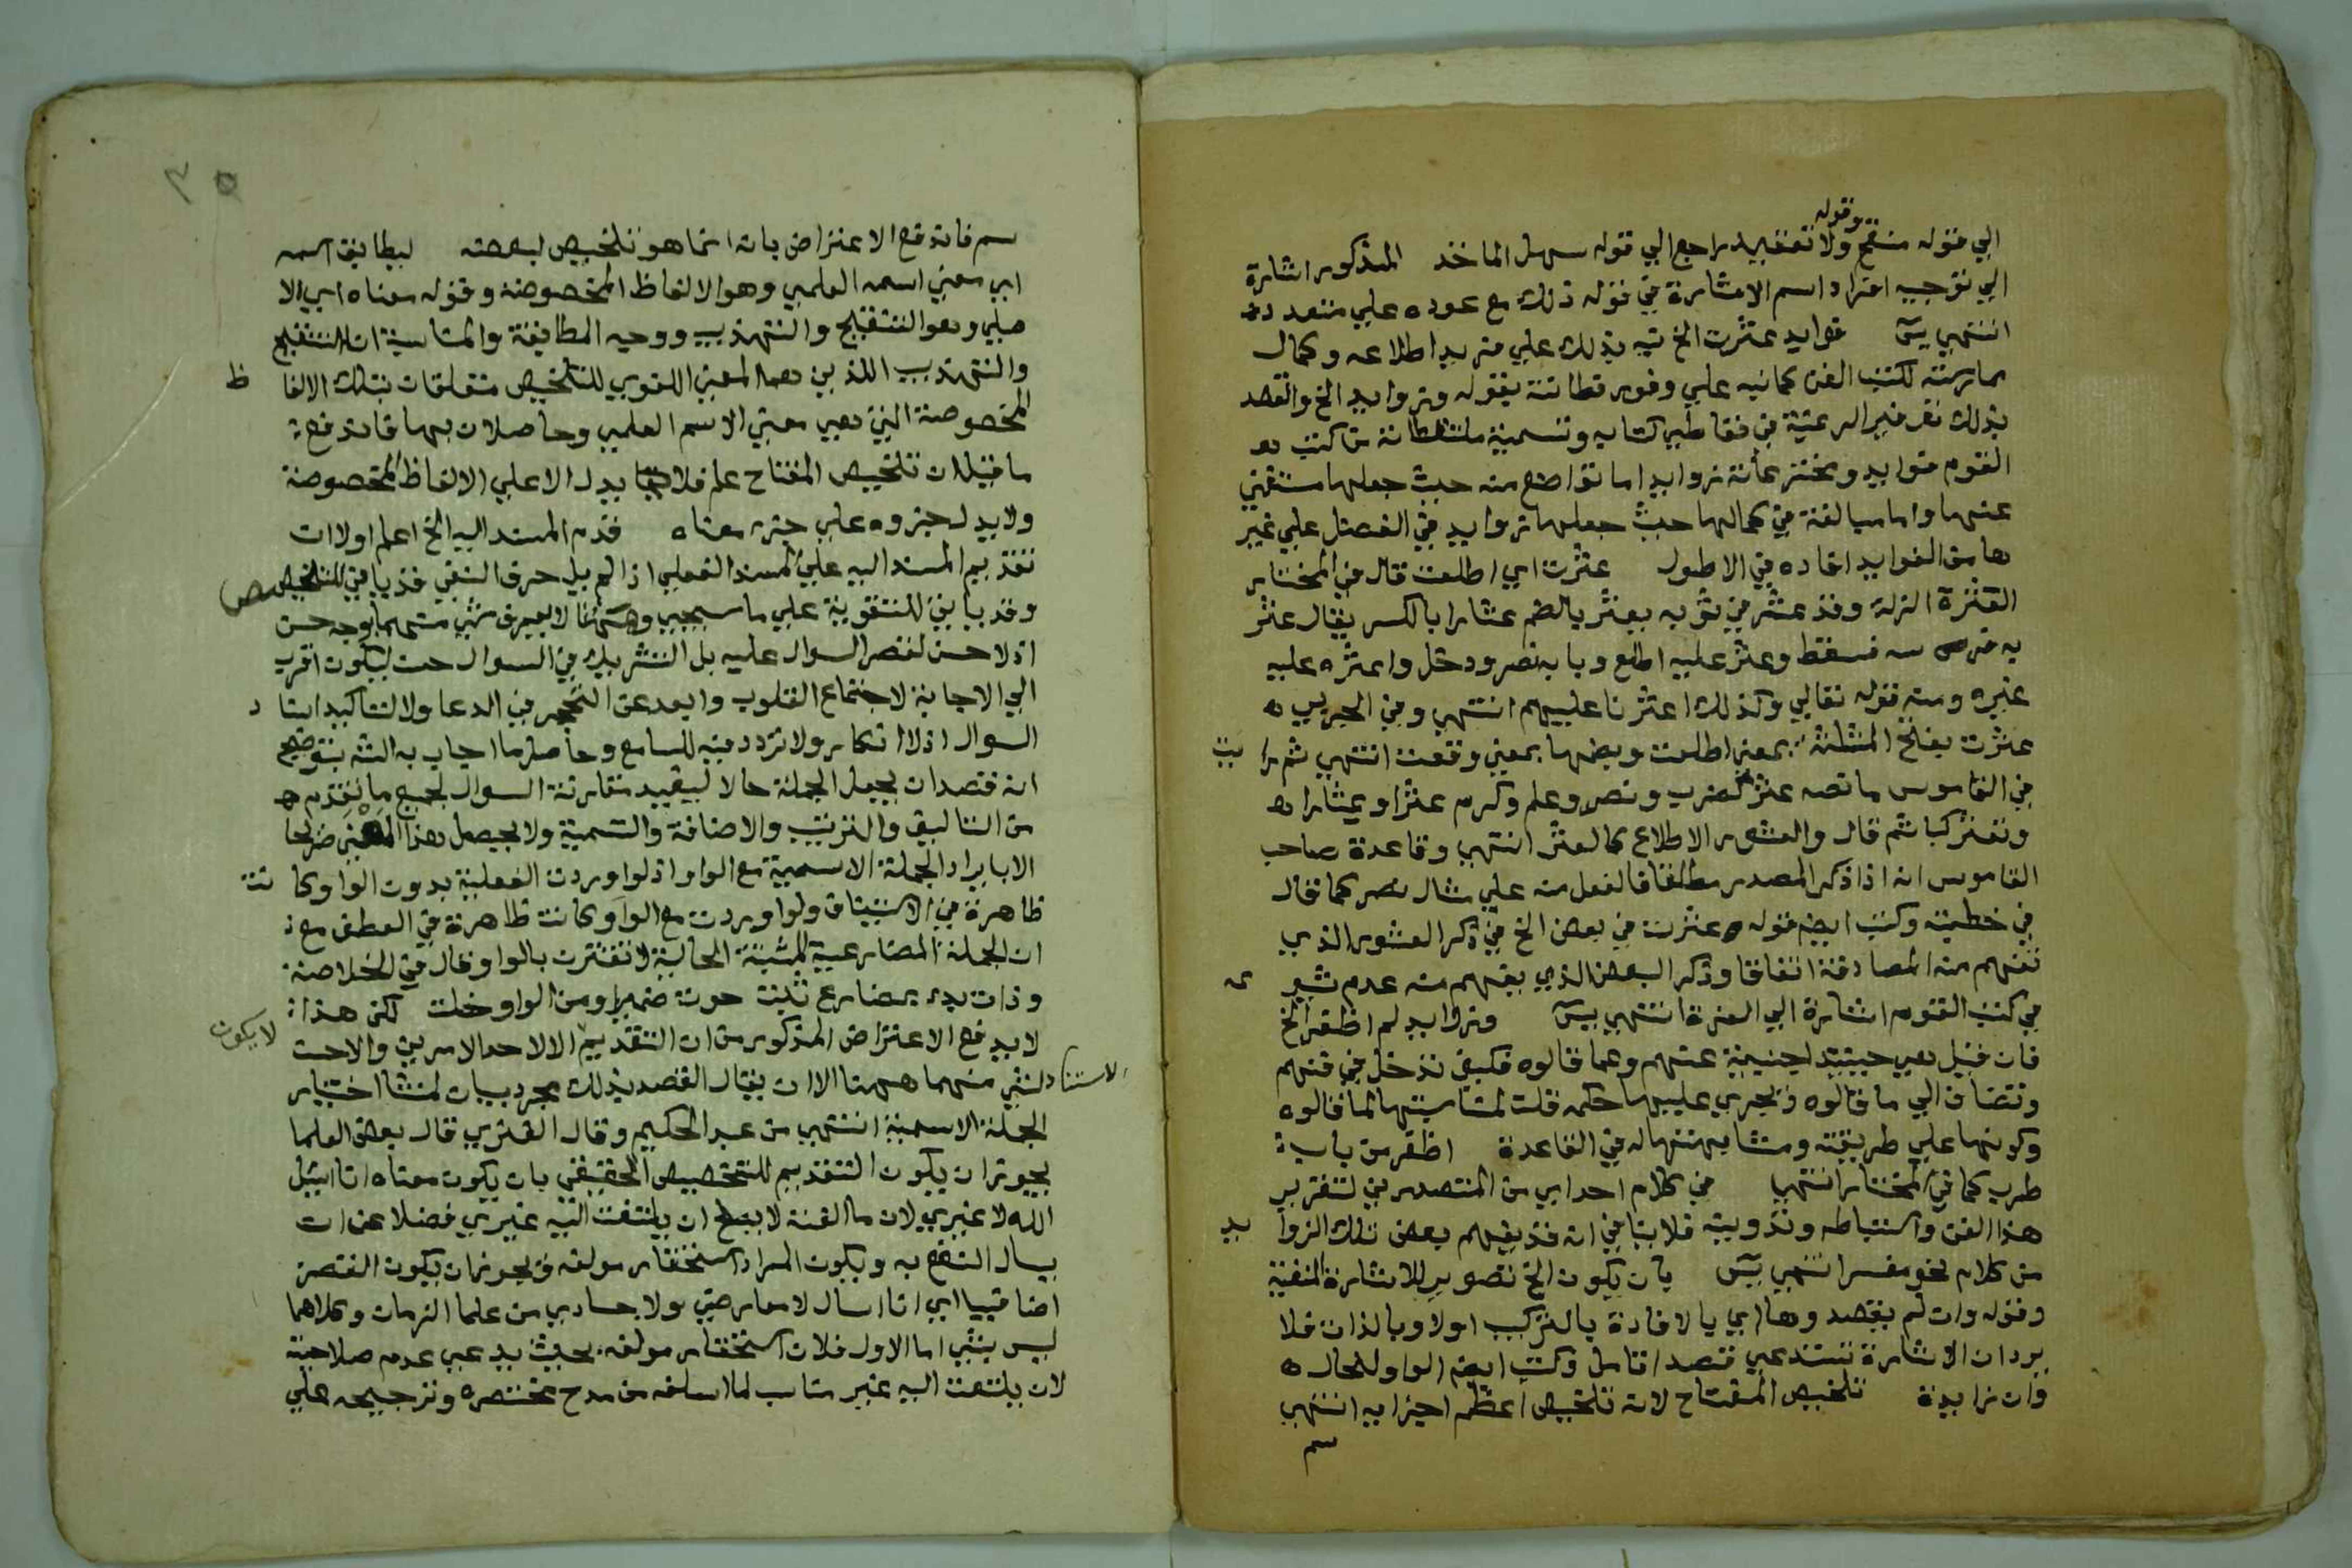 الي قوله منقح وقوله ولا تعقيد راجع الي قوله سهل الماخذ المذكور اشارة
الي توجيه افراد اسم الاشارة في قوله ذلك مع عوده علي متعدد ده
انتهي يس فوايد عثرت الخ نبه بذلك علي مزيد اطلاعه وكمال
ممارسته لكتب الفن كما نبه علي وفور فطانته بقوله وزوايد الخ والقصد
بذلك توفير الرغبة في تعاطي كتابه وتسمية ملتقطاته من كتب
القوم فوايد ومخترعاته زوايد اما تواضع منه حيث جعلها مستغني
عنها واما مبالغة في كمالها حيث جعلها زوايد في الفضل علي غير
ها من الفوايد افاده في الاطول عثرت اي اطلعت قال في المختار
العثرة الزلة وقد عثر في ثوبه يعثر بالضم عثارا بالكسر يقال عثر
به فرسه فسقط وعثر عليه اطلع وبابه نصر ودخل واعثره عليه
غيره ومنه قوله تعالي وكذلك اعثرنا عليهم انتهي وفي الحربي ه
عثرت بفتح المثلثة بمعني اطلعت وبضمها بمعني وقعت انتهي ثم رايت
في القاموس ما نصه عثر كضرب ونصر وعلم وكرم عثرا وعثارا ه
وتعثر كبا ثم قال والعثور الاطلاع كالعثر انتهي وقاعدة صاحب
القاموس انه اذا ذكر المصدر مطلقا فالفعل منه علي مثال نصر كما قال
في خطبته وكتب ايضا قوله عثرت في بعض الخ في ذكر العثور الذي
تفهم منه المصادفة اتفاقا وذكر البعض الذي يفهم منه عدم شيوعه
في كتب القوم اشارة الي العزة انتهي يس وزوايد لم اظفر الخ
فان قيل هي حينيذ اجنبية عنهم وعما قالوه فكيف تدخل في فنهم
وتضاف الي ما قالوه ويجري عليها حكمه قلت لمناسبتها لما قالوه
وكونها علي طريقته ومشابهتها له في القاعدة اظفر من باب
طرب كما في المختار انتهي في كلام احد اي من المتصدرين لتقرير
هذا الفن واستنباطه وتدوينه فلا ينافي انه قد يفهم بعض تلك الزوايد
من كلام نحو مفسر انتهي يس بان يكون الخ تصوير للاشارة المنفية
وقوله وان لم يقصدوها اي بالافادة بالتركيب اولا وبالذات فلا
يرد ان الاشارة تستدعي قصدا تامل وكتب ايضا الواو للحال ه
وان زايدة تلخيص المفتاح لانه تلخيص اعظم اجزايه انتهي
سم
٣٥
سم فاندفع الاعتراض بانه انما هو تلخيص لبعضه ليطابق اسمه
اي معني اسمه العلمي وهو الالفاظ المخصوصة وقوله معناه اي الا
صلي وهو التنقيح والتهذيب ووجه المطابقة والمناسبة ان التنقيح
والتهذيب اللذين هما المعني اللغوي للتلخيص متعلقان بتلك الالفاظ
المخصوصة التي هي معني الاسم العلمي وحاصلان بها فاندفع
ما قيل ان تلخيص المفتاح علم فلا يدل الا علي الالفاظ المخصوصة
ولا يدل جزوه علي جزء معناه قدم المسند اليه الخ اعلم اولا ان
تقديم المسند اليه علي المسند الفعلي اذا لم يل حرف النفي قد ياتي للتخصيص
وقد ياتي للتقوية علي ما سيجيء وههنا لا يعرف لشيء منهما وجه حسن
اذ لا حسن لقصر السوال عليه بل التشريك في السوال حسن ليكون اقرب
الي الاجابة لاجتماع القلوب وابعد عن التحجير في الدعا ولا لتاكيد اسناد
السوال اذ لا انكار ولا تردد فيه للسامع وحاصل ما اجاب به الشه بتوضيح
انه قصد ان يجعل الجملة حالا ليفيد مقارنة السوال لجميع ما تقدم ه
من التاليف والترتيب والاضافة والتسمية ولا يحصل هذا المعني صريحا
الا بايراد الجملة الاسمية مع الواو اذ لو اوردت الفعلية بدون الواو كانت
ظاهرة في الاستيناف ولو اوردت مع الواو كانت ظاهرة في العطف مع
ان الجملة المضارعية المثبتة الحالية لا تقترن بالواو قال في الخلاصة
وذات بدء بمضارع ثبت حوت ضميرا ومن الواو خلت لكن هذا
لا يدفع الاعتراض المذكور من ان التقديم لا يكون الا لاحد الامرين والاحسن
لشيء منهما ههنا الا ان يقال القصد بذلك مجرد بيان لمنشا اختيار
الجملة الاسمية انتهي من عبد الحكيم وقال الفنري قال بعض العلما
يجوز ان يكون التقديم للتخصيص الحقيقي بان يكون معناه انا اسئل
الله لا غيري لان ما الفته لا يصلح ان يلتفت اليه غيري فضلا عن ان
يسال النفع به ويكون المراد استحقار مولفه ويجوز ان يكون القصر
اضافيا اي انا اسال لا معارضي ولا حسادي من علما الزمان وكلاهما
ليس بشي اما الاول فلان استحقار مولفه بحيث يدعي عدم صلاحيته
لان يلتفت اليه غير مناسب لما اسلفه من مدح مختصره وترجيحه علي